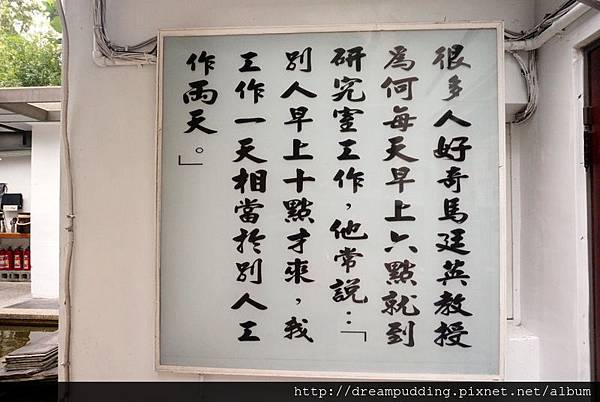 很多人好奇馬廷英教授
為何每天早上六點就到
研究室工作，他常說：「
別人早上十點才來，我
工作一天相當於別人工
作兩天。」
http://dreampudding.pixnet.net/album